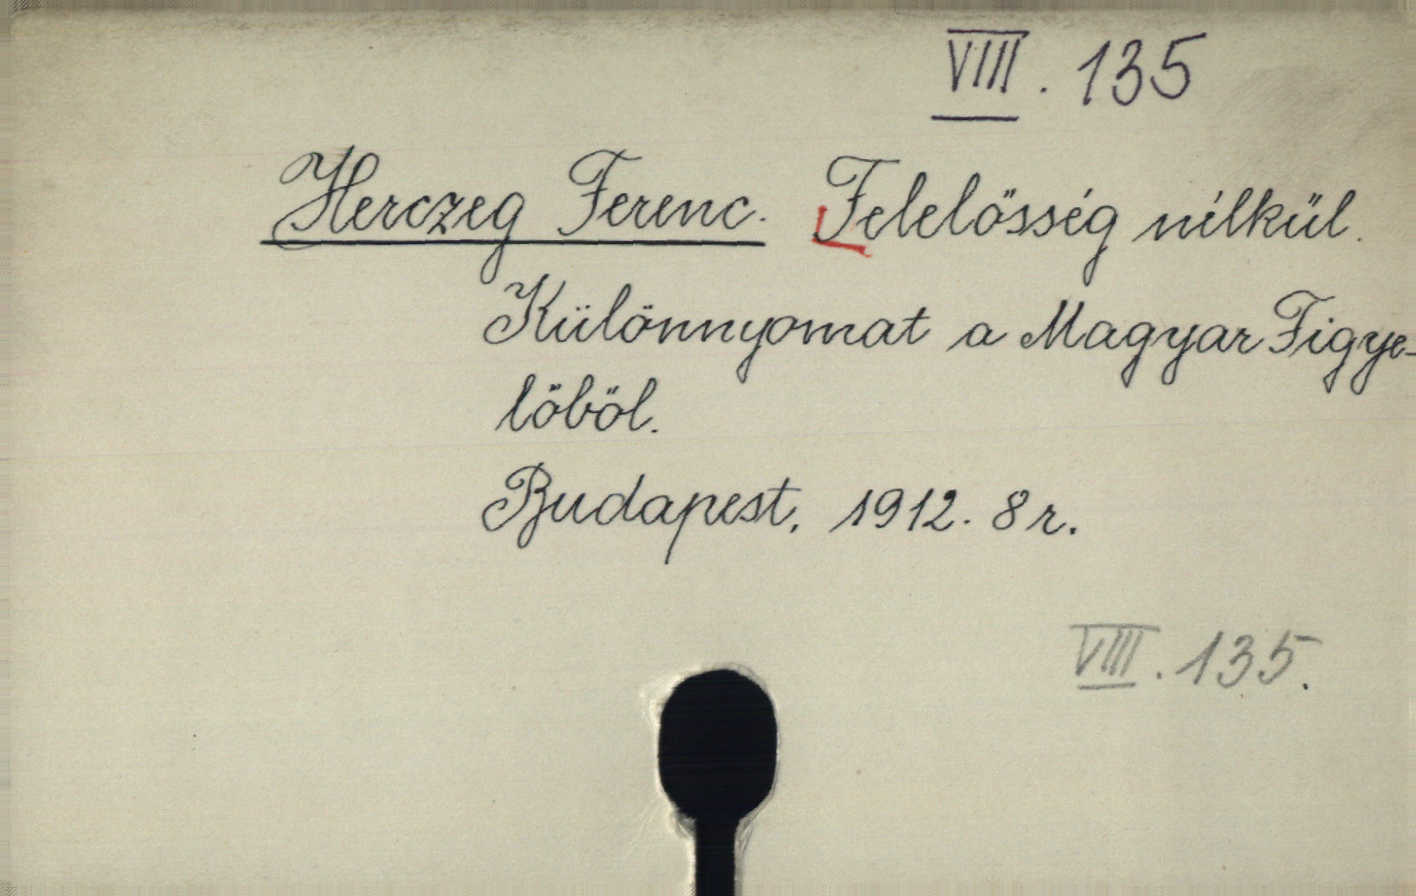 VIII. 135
Herczeg Ferenc. Felelősség nélkül.
Különnyomat a Magyar Figye-
lőből.
Budapest, 1912. 8 r.
VIII. 135.